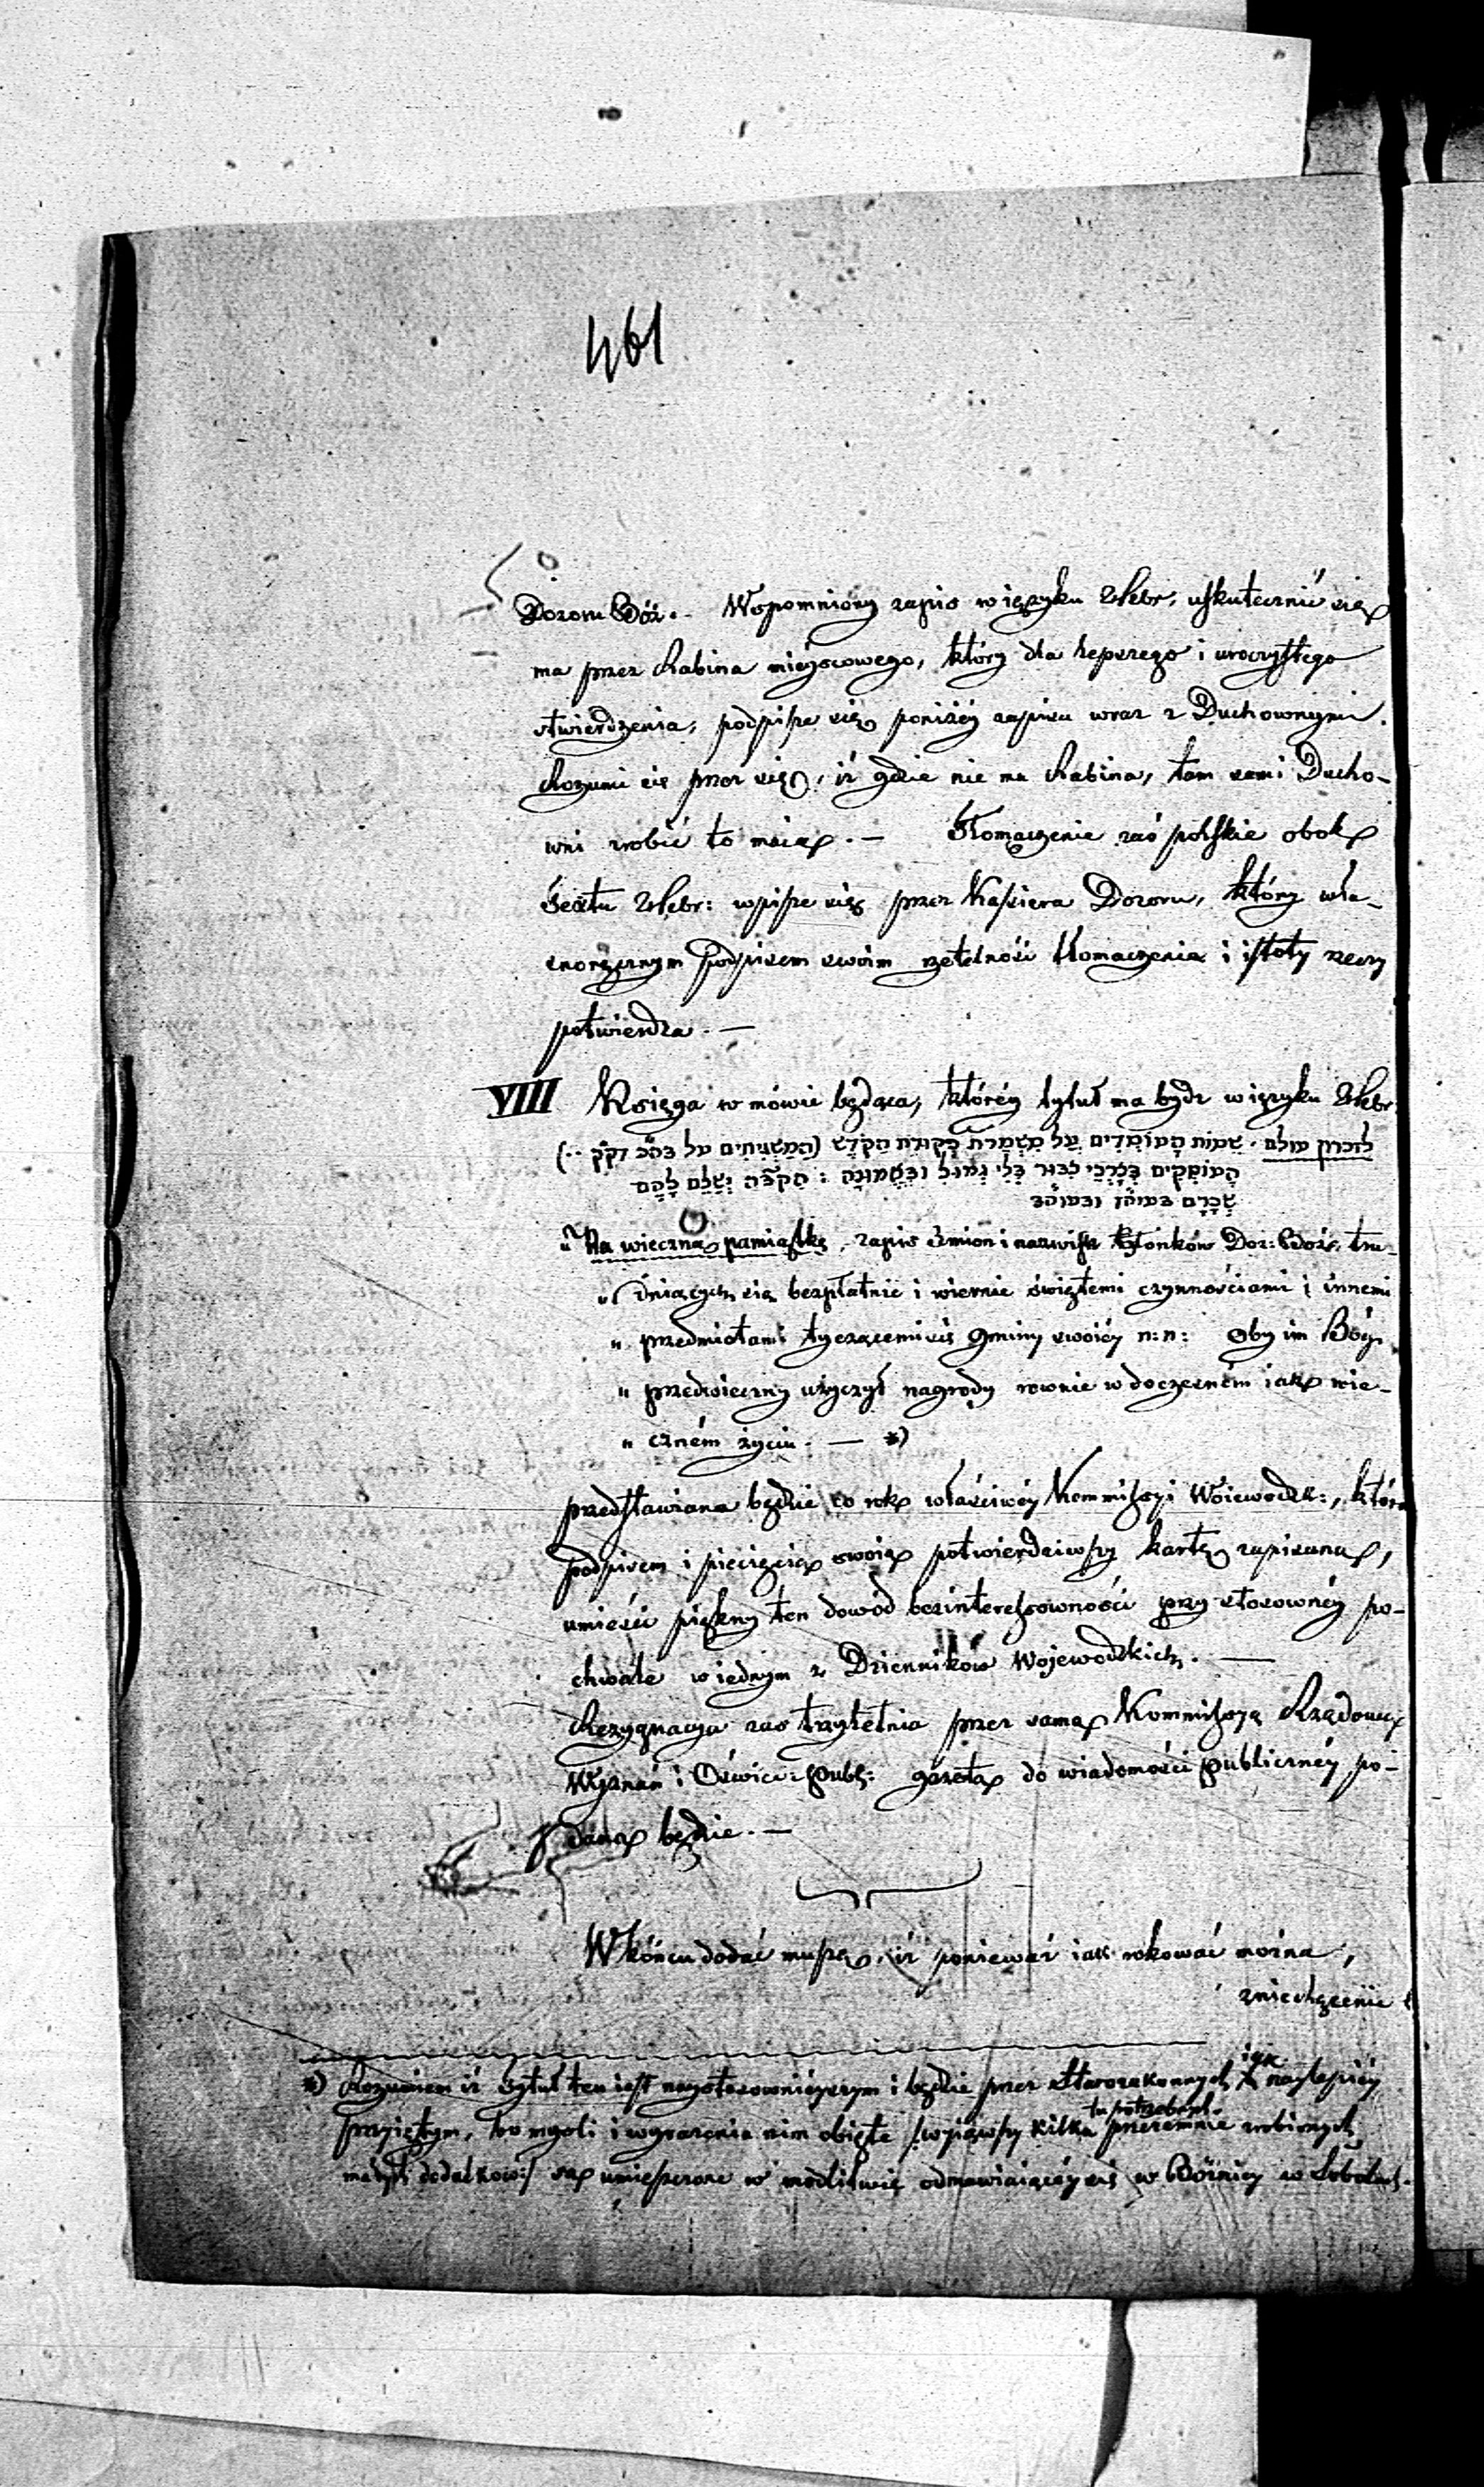 461
Dozoru Bóż. Wspomniony zapis w ięzyku Hebr. uskutecznić się
ma przez Rabina mieyscowego, który dla lepszego i uroczystego
stwierdzenia, podpisze się poniżéy zapisu wraz z Duchownymi.
Rozumi się przez się, iż gdzie nie ma Rabina, tam sami Ducho-
wni zrobić to maią. — Tłomaczenie zaś polskie obok
textu Hebr: wpisze się przez Kassiera Dozoru, który wła-
snoręcznym podpisem swoim rzetelność tłomaczenia i istoty rzeczy
potwierdza. —
VIII Księga w mówie będąca, któréy tytuł ma bydz w ięzyku Hebr:
לזכרון עולם . שֵׁמוֹת הָעוֹמְדִים עַל מִשְׁמֶרֶת פְּקוּדַת הַקֹּדֶשׁ (הַמַשְׁגִיחִים על בה״כ דק״ק ..)
הָעוֹסְקִים בְּצָרְכֵי צִבּוּר בְּלִי גְמוּל וּבֶאֱמוּנָה : הקב״ה יְשַׁלֵּם לָהֶם
שְׂכָרָם בעוה״ז ובעוה״ב
„ Na wieczną pamiątkę, zapis imion i nazwisk Członków Doz: Bóżn. tru-
„ dniących się bezpłatnie i wiernie świętemi czynnościami i innemi
„ przedmiotami tyczącemi się Gminy swoiéy n: n: Oby im Bóg
„ przedwieczny użyczył nagrody rownie w doczesném iak wie-
„ czném życiu. — *)
przedstawiana będzie co rok właściwéy Kommissyi Woiewodzk:, która
podpisem i pieczęcią swoią potwierdziwszy kartę zapisaną,
umieści piękny ten dowód bezinteressowności przy stosownéy po-
chwale w iednym z Dzienników Wojewodzkich. —
Rezygnacya zas trzyletnia przez samą Kommissyą Rządową
Wyznań i Oświec: Publ: gazetą do wiadomości publicznéy po-
daną będzie. —
W końcu dodać muszę, iż ponieważ iak rokować można,
zniechęcenie
*) Rozumiem iż tytuł ten iest naystosownieyszym i będzie przez Starozakonnych iak naylepiéy
przyiętym, bo myśli i wyrażenia nim obięte /wyiąwszy kilka tu potrzebnych przezemnie zrobionych
małych dodatków/ są umieszczone w modlitwie odmawiaiącéy się w Bóżnicy w Soboty.